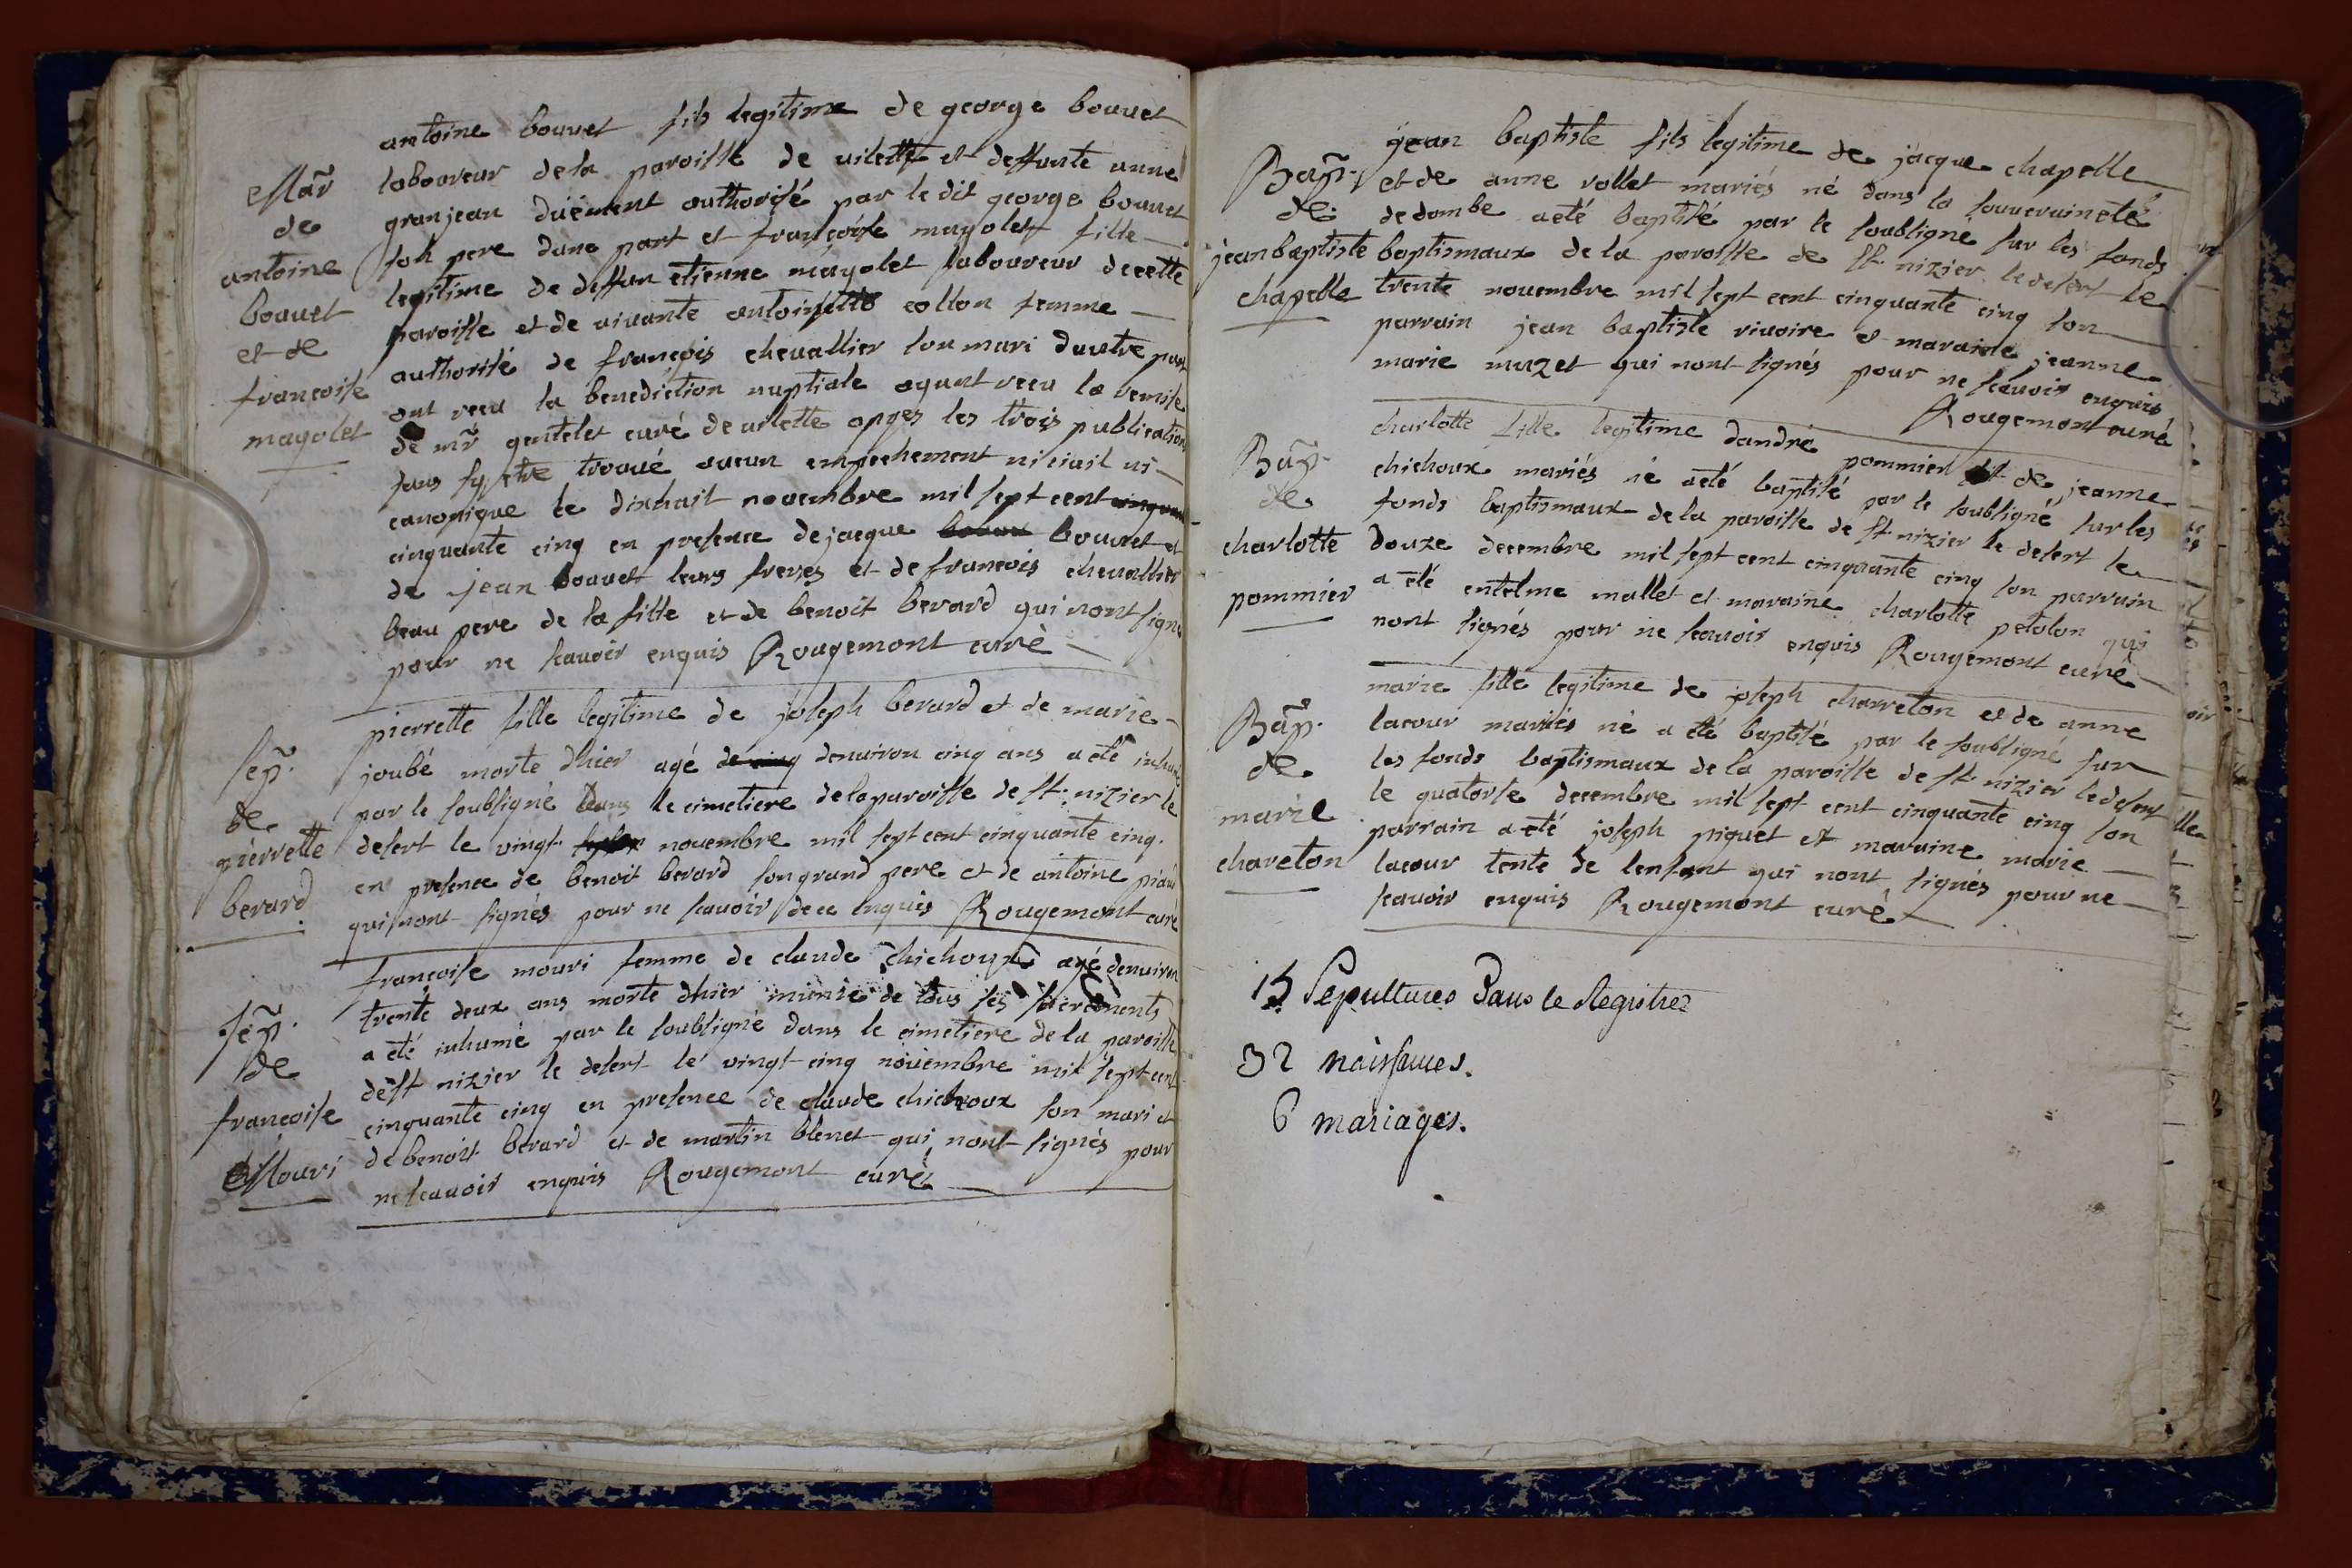 Mar
de
antoine
bouvet
et de
francoise
magolet
antoine bouvet fils legitime de george bouvet
laboureur de la paroisse de vilette et deffunte anne
granjean duëment authorisé par le dit george bouvet
son pere dune part et francoise magolet fille
legitime de deffun etienne magolet laboureur decette
paroisse et de vivante antoinette collon femme
authorisé de françois chevallier son mari dautre part
ont recu la benediction nuptiale ayant recu la remise
de mr gentelet curé de vilette apres les trois publications
sans sy etre trouvé aucun empechement ni civil ni
canonique le dixhuit novembre mil sept cent
cinquante cinq en presence de jacque bouvet et
de jean bouvet leurs freres et de francois chevallier
beau pere de la fille et de benoit berard qui nont signé
pour ne scavoir enquis Rougemont curé
sep.
de
pierrette
berard
pierrette fille legitime de joseph berard et de marie
joubé morte dhier agé de cinq denviron cinq ans a été inhumé
par le soubsigné dans le cimetiere de la paroisse de st. nizier le
desert le vingt novembre mil sept cent cinquante cinq.
en presence de benoit berard son grand pere et de antoine
qui nont signés pour ne scavoir de ce enquis Rougemont curé
sep.
de
francoise
Mouri
francoise mouri femme de claude chichoux agé denviron
trente deux ans morte dhier munie de tous ses sacrements
a été inhumé par le soubsigné dans le cimetiere de la paroisse
de st nizier le desert le vingt-cinq novembre mil sept cent
cinquante cinq en presence de claude chichoux son mari et
de benoit berard et de martin blenet qui nont signés pour
ne scavoir enquis Rougemont curé
Bap.
de
jean baptiste
chapelle
jean baptiste fils legitime de jacque chapelle
et de anne vollet mariés né dans la souveraineté
de dombe a eté baptisé par le soubsigne sur les fonds
baptismaux de la paroisse de st. nizier le desert le
trente novembre mil sept cent cinquante cinq son
parrain jean baptiste rivoire et maraine jeanne
marie muzet qui nont signés pour ne scavoir enquis
Rougemont curé
Bap.
de
charlotte
pommier
charlotte fille legitime dandré pommier et de jeanne
chichoux mariés né a eté baptisé par le soubsigné sur les
fonds baptismaux de la paroisse de st nizier le desert le
douze decembre mil sept cent cinquante cinq son parrain
a été entelme mallet et maraine charlotte petolon qui
nont signés pour ne scavoir enquis Rougemont curé
Bap.
de
marie
chareton
marie fille legitime de joseph charreton et de anne
lacour mariés né a été baptisé par le soubsigné sur
les fonds baptismaux de la paroisse de st nizier le desert
le quatorse decembre mil sept cent cinquante cinq son
parrain a eté joseph piquet et maraine marie
lacour tente de lenfant qui nont signés pour ne
scavoir enquis Rougemont curé
15 Sepultures Dans le Registre
32 naissances.
6 mariages.